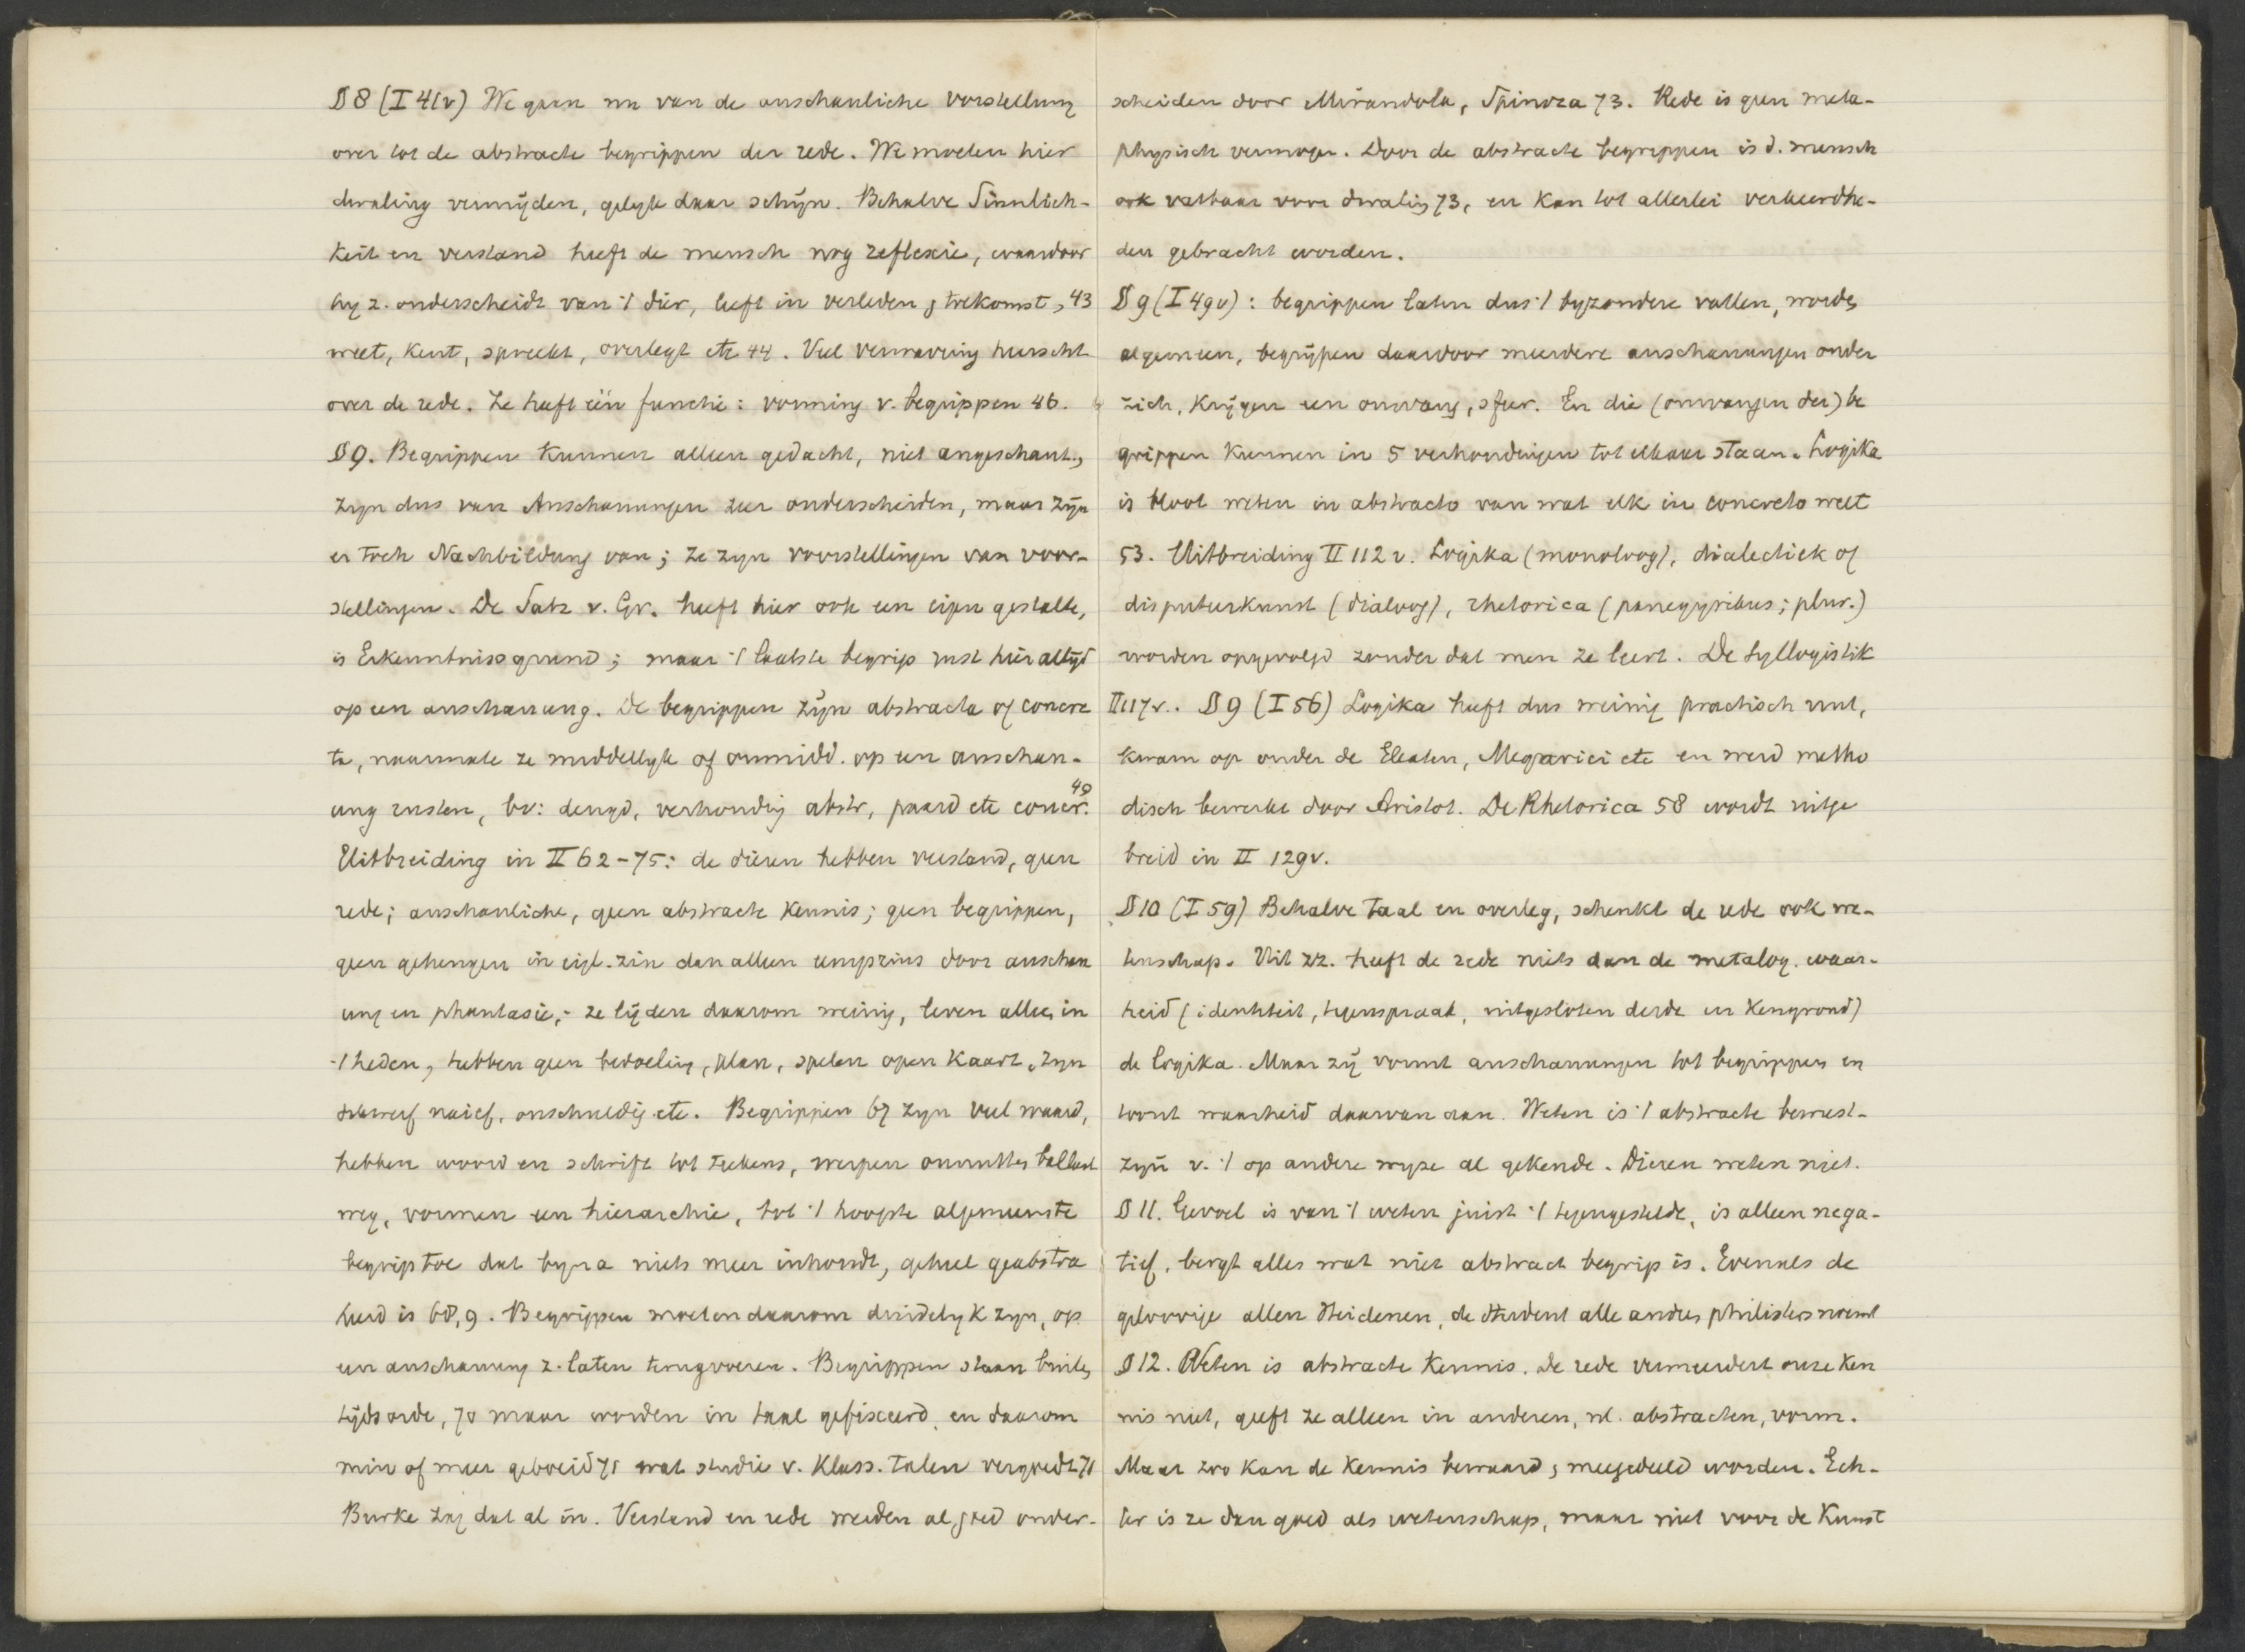 § 8 (I 41v) We gaan nu van de anschauliche Vorstellung
over tot de abstracte begrippen der rede. We moeten hier
dwaling vermijden, gelijk daar schijn. Behalve Sinnlich-
keit en verstand heeft de mensch nog reflexie, waardoor
hij z. onderscheidt van 't dier, leeft in verleden, toekomst, 43
weet, kent, spreekt, overlegt etc 44. Veel verwarring heerscht
over de rede. Ze heeft één functie: vorming v. begrippen 46.
§ 9. Begrippen kunnen alleen gedacht, niet angeschaut,
zijn dus van Anschauungen zeer onderscheiden, maar zijn
er toch Nachbildung van; ze zijn voorstellingen van voor-
stellingen. De Satz v. Gr. heeft hier ook een eigen gestalte,
is Erkenntnissgrund; maar 't laatste begrip rust hier altijd
op een anschauung. De begrippen zijn abstracta of concre
ta, naarmate ze middellijk of onmidd. op een anschau-
ung rusten, bv: deugd, verhouding abstr, paard etc concr. 49
Uitbreiding in II 62-75: de dieren hebben verstand, geen
rede; anschauliche, geen abstracte kennis; geen begrippen,
geen geheugen in eigl. zin dan alleen eenigzins door anschau
ung en phantasie; ze lijden daarom weinig, leven alleen in
't heden, hebben geen bedoeling, plan, spelen open kaart, zijn
naief, onschuldig etc. Begrippen 67 zijn veel waard,
hebben woord en schrift tot teekens, werpen onnutten ballast
weg, vormen een hierarchie, tot 't hoogste algemeenste
begrip toe dat bijna niets meer inhoudt, geheel geabstra
heerd is 68,9. Begrippen moeten daarom duidelijk zijn, op
een anschauung z. laten terugvoeren. Begrippen staan buiten
tijdsorde, 70 maar worden in taal gefixeerd en daarom
min of meer geboeid 71 wat studie v. klass. talen vergoedt 71
Burke zag dat al in. Verstand en rede werden al goed onder-
scheiden door Mirandola, Spinoza 73. Rede is geen meta-
physisch vermogen. Door de abstracte begrippen is d. mensch
ook vatbaar voor dwaling 73, en kan tot allerlei verkeerdhe-
den gebracht worden.
§ 9 (I 49v): begrippen laten dus 't bijzondere vallen, worden
algemeen, begrijpen daardoor meerdere anschauungen onder
zich, krijgen een omvang, sfeer. En die (omvangen der) be
grippen kunnen in 5 verhoudingen tot elkaar staan. Logika
is bloot weten in abstracto van wat elk in concreto weet
53. Uitbreiding II 112 v. Logika (monoloog), dialectiek of
disputeerkunst (dialoog), rhetorica (panegyrikus; plur.)
worden opgevolgd zonder dat men ze leert. De Syllogistik
II 117v. § 9 (I 56) Logika heeft dus weinig practisch nut,
kwam op onder de Eleaten, Megarici etc en werd metho
disch bewerkt door Aristot. De Rhetorica 58 wordt uitge
breid in II 129v.
§ 10 (I 59) Behalve taal en overleg, schenkt de rede ook we-
tenschap. Uit zz. heeft de rede niets dan de metalog. waar-
heid (identiteit, tegenspraak, uitgesloten derde en kengrond)
de logika. Maar zij vormt anschauungen tot begrippen en
toont waarheid daarvan aan. Weten is 't abstracte bewust-
zijn v. 't op andere wijze al gekende. Dieren weten niet.
§ 11. Gevoel is van 't weten juist 't tegengestelde, is alleen nega-
tief, bergt alles wat niet abstract begrip is. Evenals de
geloovige allen Heidenen, de student alle andren philisters noemt
§ 12. Weten is abstracte kennis. De rede vermeerdert onze ken
nis niet, geeft ze alleen in anderen, nl. abstracten, vorm.
Maar zoo kan de kennis bewaard, meegedeeld worden. Ech-
ter is ze dan goed als wetenschap, maar niet voor de Kunst